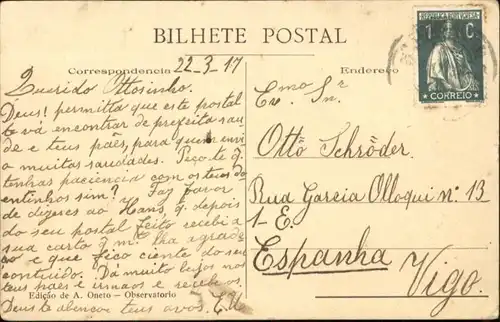 BILHETE POSTAL
REPUBLICA PORTUGUESA
1 C
CORREIO
Correspondencia 22-3-17
Endereço
Querido Ottosinho.
Deus! permitta que este postal
te vá encontrar de prefeita sau
de e teus pais, para quem envi
o muitas saudades. Peço-te q.
tenhas paciencia com os teus do
entinhos sim? Faz favor
de dizeres ao Hans, q. depois
do seu postal feito recebi a
sua carta q. m. lha agrade
ço e que fico ciente do seu
contiudo. Dá muito beijos nos
teus paes e irmãos e recebe os.
Edição de A. Oneto - Observatorio
Deus te abençoe teus avos.
Exmo Snr.
Otto Schröder.
Rua Garcia Olloqui nº 13
1-E.
Espanha
Vigo.